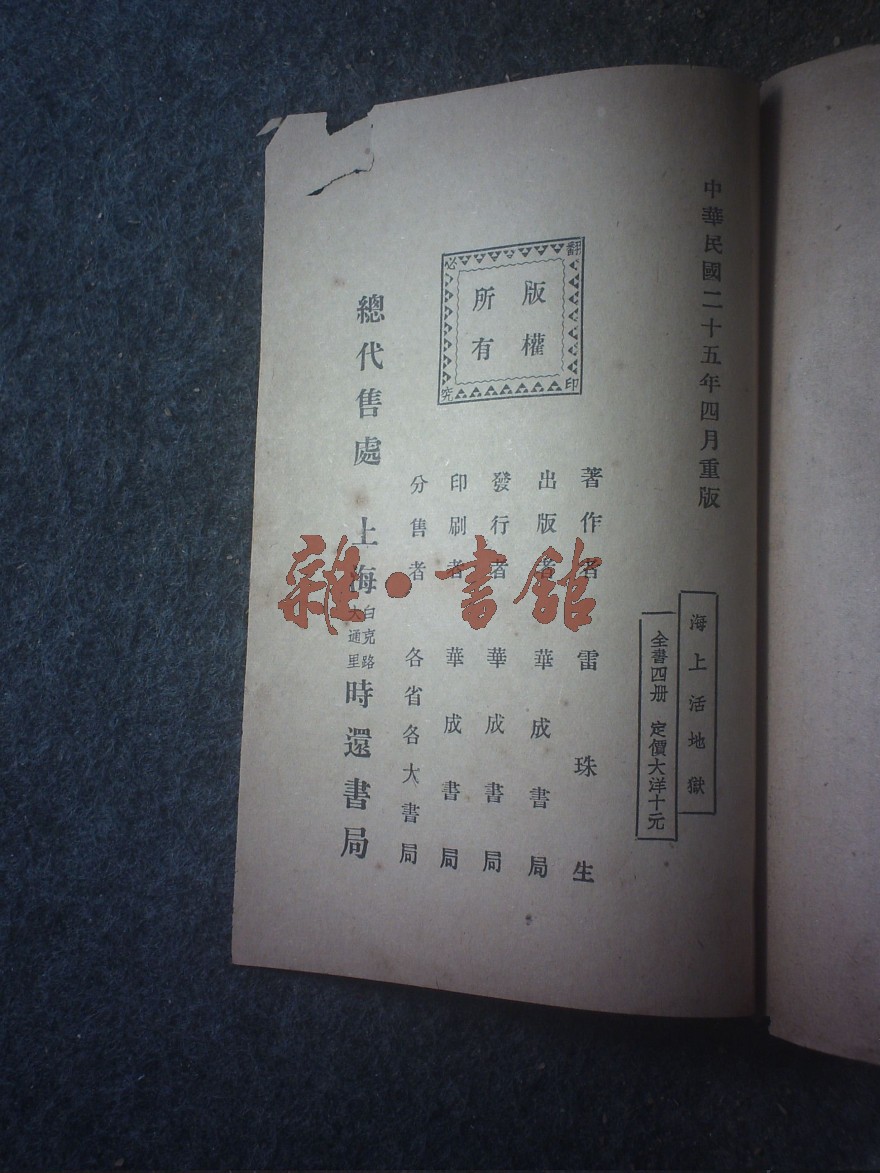 中華民國二十五年四月重版
海上活地獄
全書四册 定價大洋十元
版權
所有
翻印
必究
著作者 雷珠生
出版者 華成書局
發行者 華成書局
印刷者 華成書局
分售者 各省各大書局
總代售處 上海白克路大通里時還書局
雜·書館